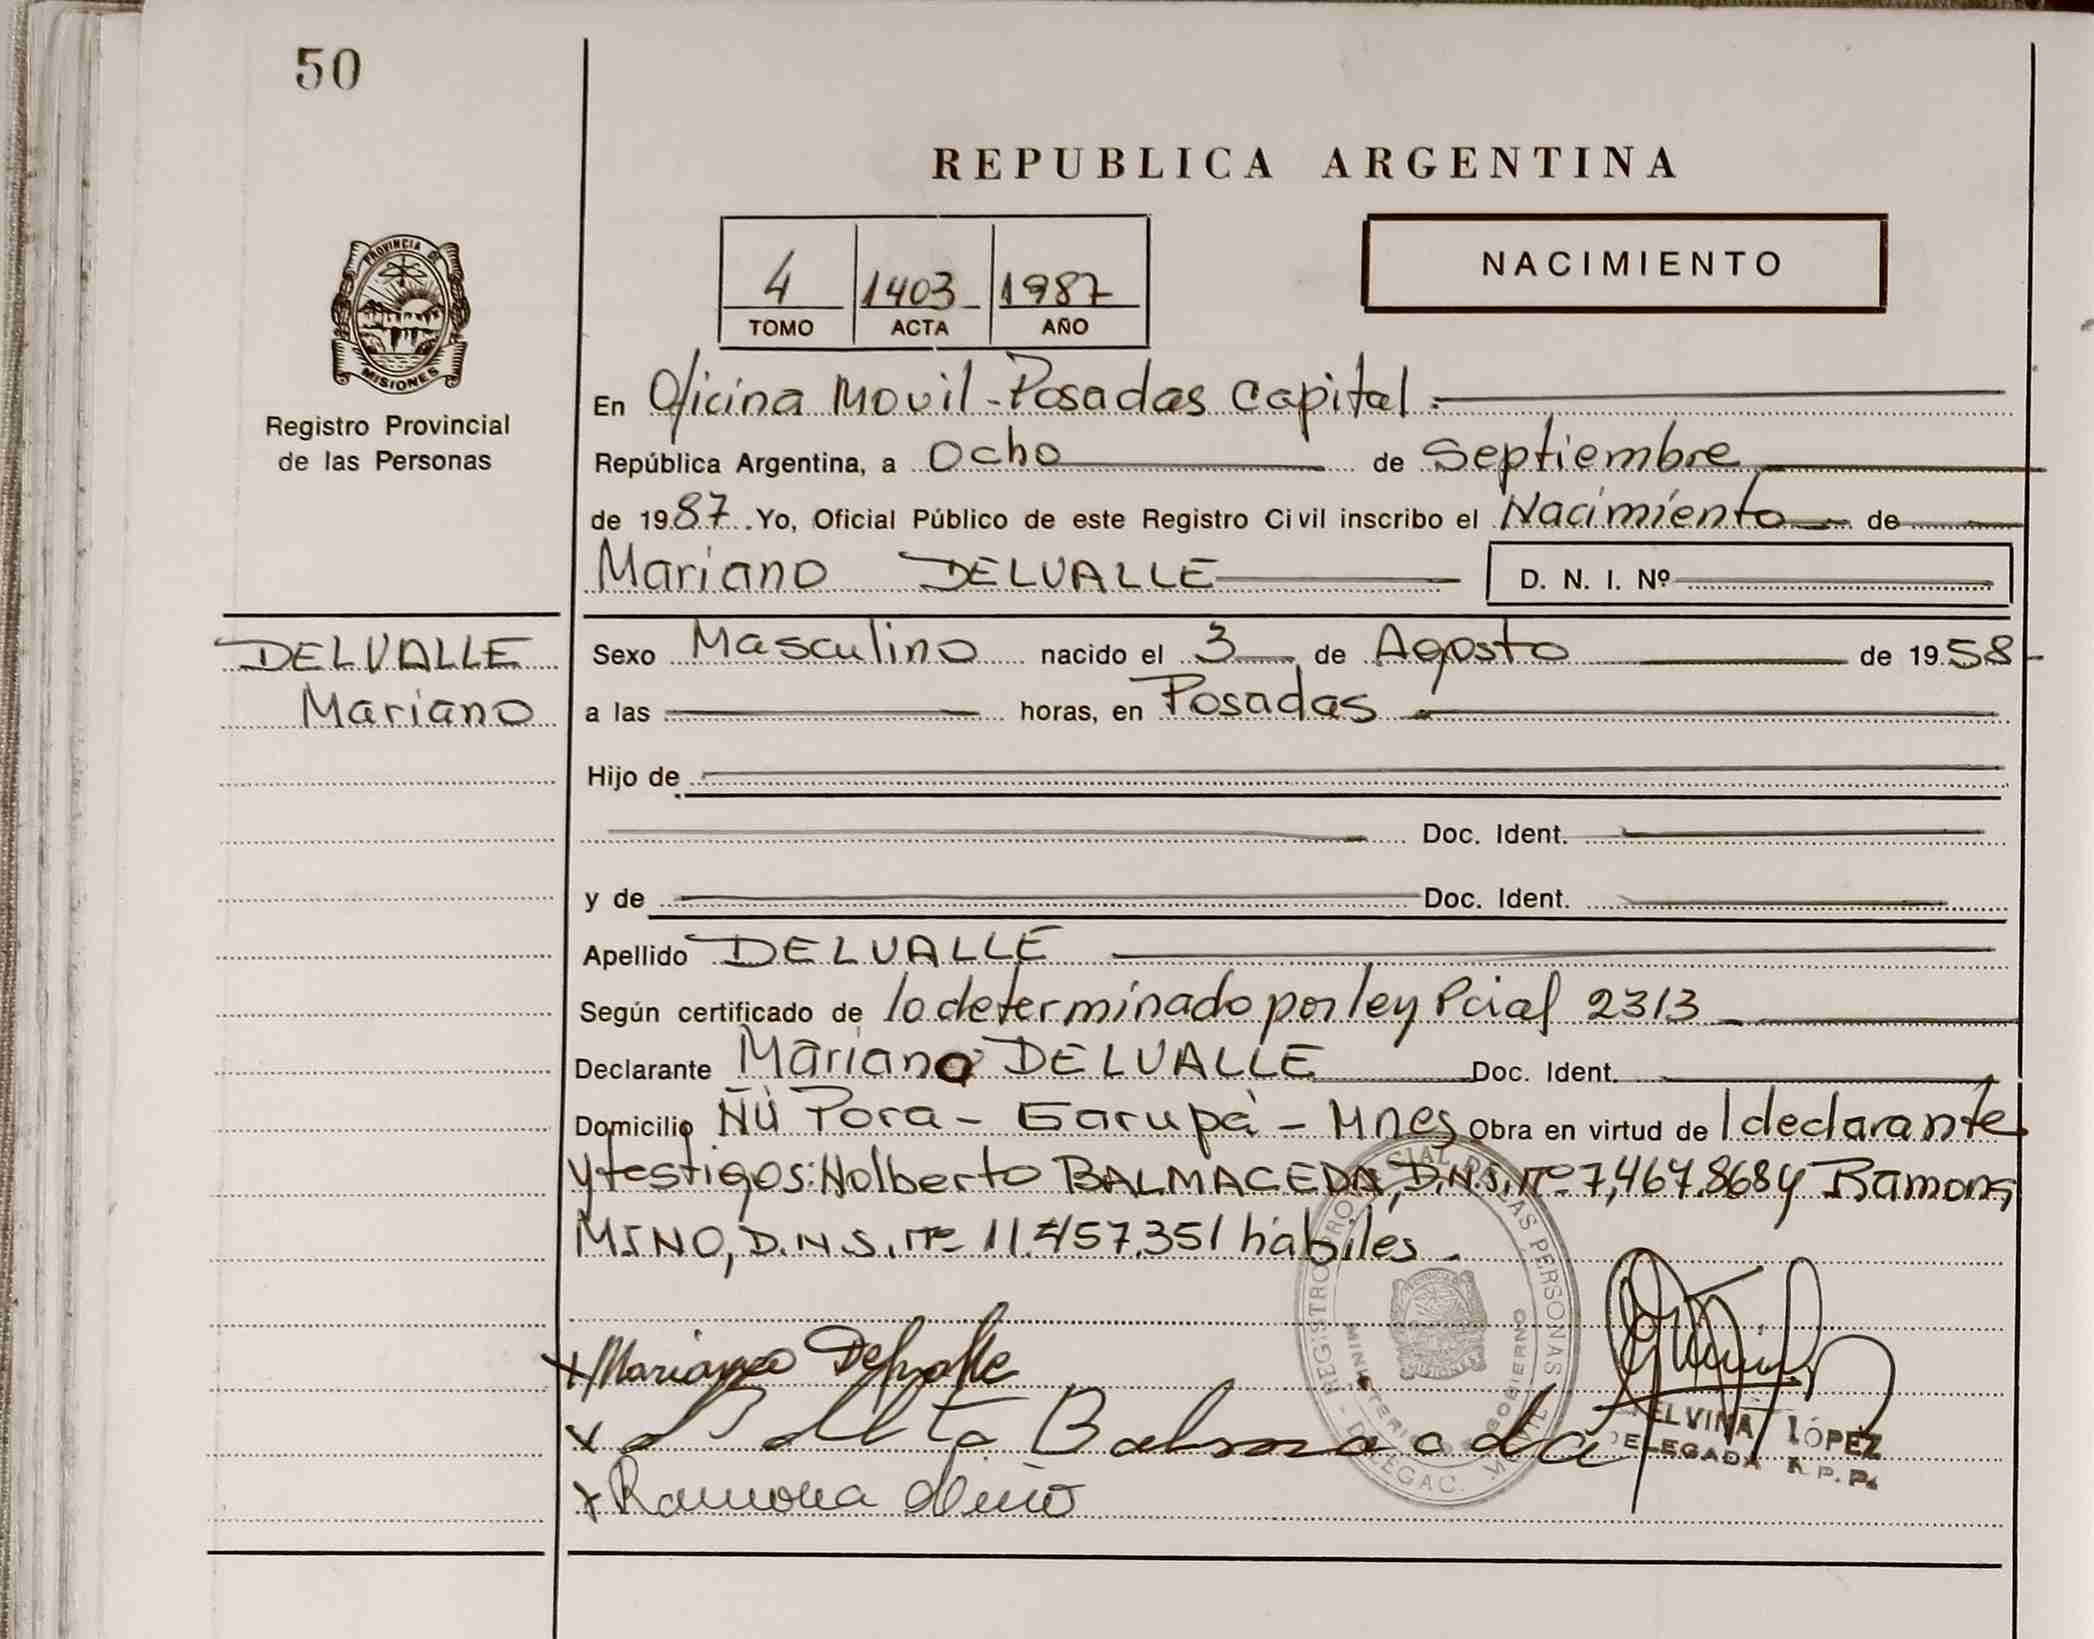 50
REPUBLICA ARGENTINA
NACIMIENTO
4 1403 1987
TOMO ACTA AÑO
PROVINCIA DE
MISIONES
Registro Provincial
de las Personas
En Oficina Movil - Posadas Capital.
República Argentina, a Ocho de Septiembre
de 1987. Yo, Oficial Público de este Registro Civil inscribo el Nacimiento de
Mariano DELVALLE D. N. I. Nº
DELVALLE
Mariano
Sexo Masculino nacido el 3 de Agosto de 1958
a las horas, en Posadas
Hijo de
Doc. Ident.
y de Doc. Ident.
Apellido DELVALLE
Según certificado de lo determinado por ley Pcial 2313
Declarante Mariano DELVALLE Doc. Ident.
Domicilio Ñú Pora - Garupá - Mnes Obra en virtud de l declarante
y testigos: Nolberto BALMACEDA, D.N.I. Nº 7,467.868 y Ramona
MINO, D.N.I. Nº 11.457.351 hábiles.
Mariano Delvalle
Balmaceda
Ramona Miño
REGISTRO PROVINCIAL DE LAS PERSONAS
MINISTERIO GOBIERNO
DELEGAC. MOVIL
ELVIRA LÓPEZ
DELEGADA R. P. P.